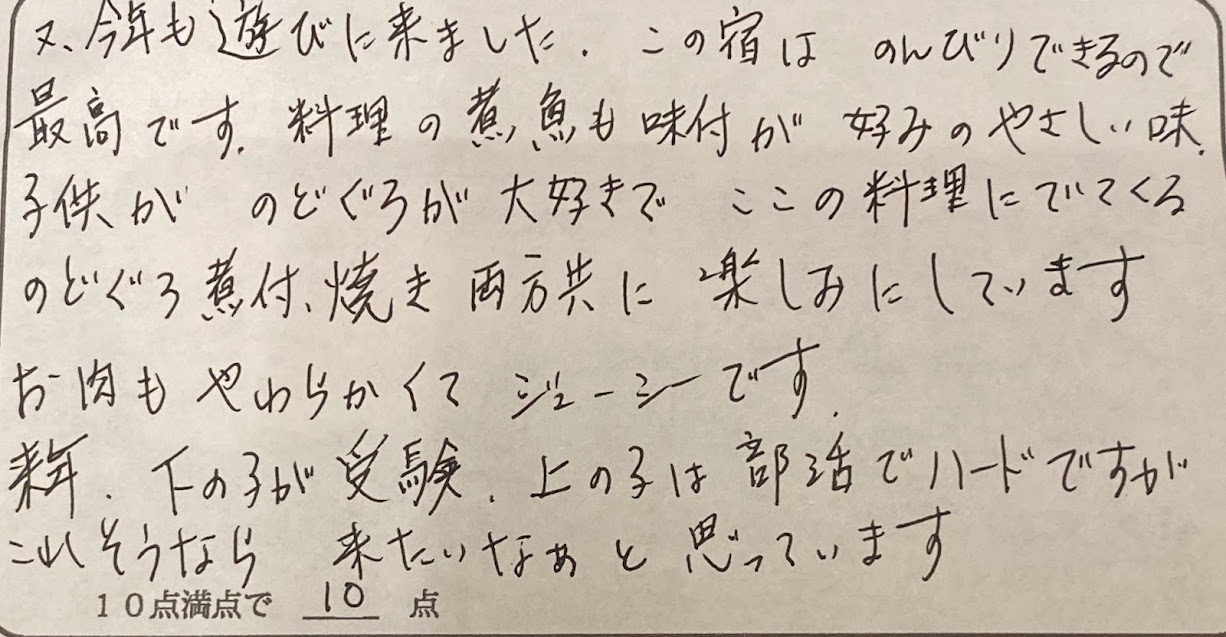 又、今年も遊びに来ました。この宿は のんびりできるので
最高です。料理の煮魚も味付が 好みのやさしい味。
子供が のどぐろが大好きで ここの料理にでてくる
のどぐろ煮付、焼き両方共に 楽しみにしています
お肉もやわらかくてジューシーです。
来年、下の子が受験、上の子は部活でハードですが
これそうなら 来たいなぁと思っています
10点満点で 10 点